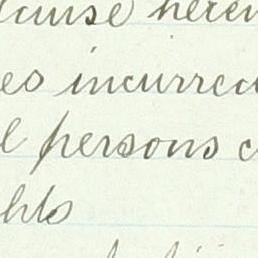 clause herein
es incurred
l persons c
hts